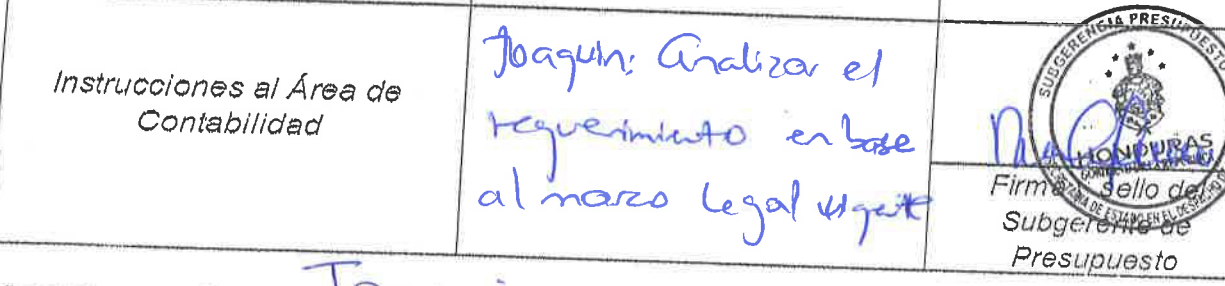 Instrucciones al Área de
Contabilidad
Joaquin: Analizar el
requerimiento en base
al marco Legal vigente
SUBGERENCIA PRESUPUESTO
HONDURAS
SECRETARIA DE ESTADO EN EL DESPACHO DE
Firma y Sello del
Subgerente de
Presupuesto